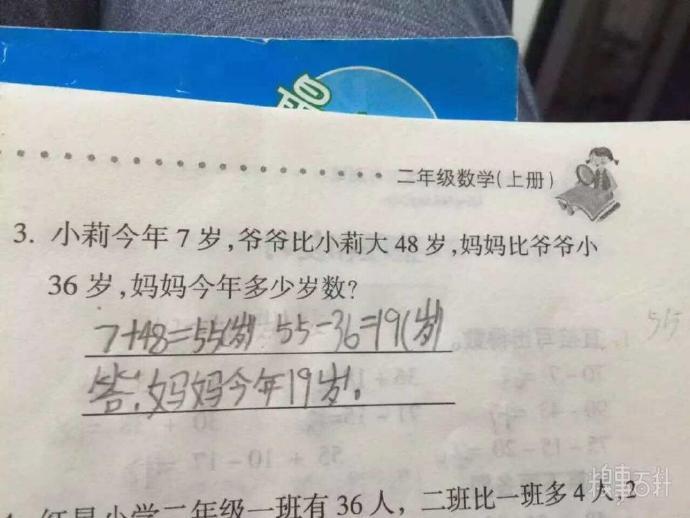 二年级数学(上册)
3. 小莉今年7岁,爷爷比小莉大48岁,妈妈比爷爷小
36岁,妈妈今年多少岁数?
7+48=55(岁) 55-36=19(岁)
答:妈妈今年19岁。
红星小学二年级一班有36人,二班比一班多4人,2
糗事百科